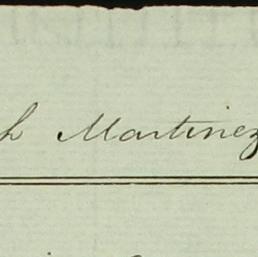 h Martinez